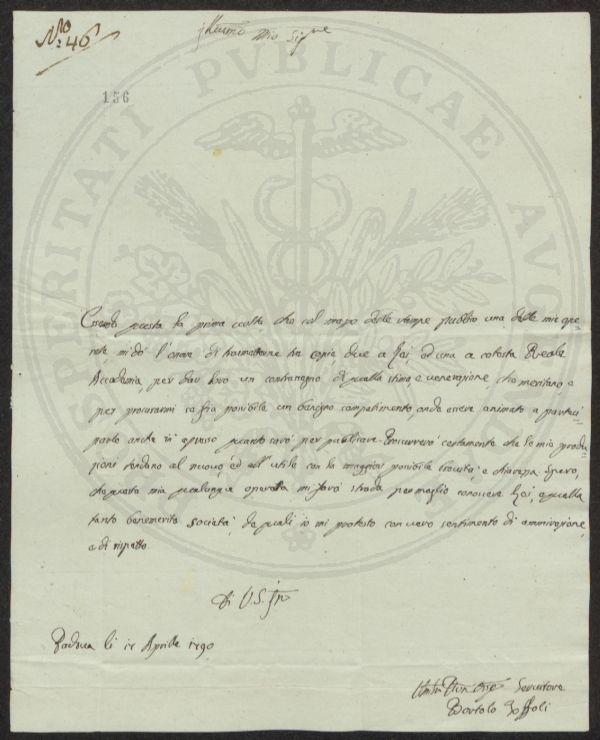 N.ro 46
Illustrmo Mio Sig.re
156
PROSPERITATI PVBLICAE AVGENDAE
Essendo questa la prima volta che col mezzo delle stampe pubblico una delle mie ope-
rete mi dò l'onore di trasmetterne tre copie due a Lei, ed una a codesta Reale
Accademia, per dar loro un contrasegno di quella stima e venerazione, che meritano, e
per procurarmi se fia possibile un benigno compatimento, onde essere animato a parteci-
parle anche in appresso quanto sarò per pubblicare. Procurerò certamente che le mie produ-
zioni tendano al nuovo ed all'utile con la maggior possibile brevità, e chiarezza. Spero,
che questa mia qualunque operetta mi farà strada per meglio conoscere Lei, e quella
tanto benemerita Società, de quali io mi protesto con vero sentimento di ammirazione,
e di rispetto.
Di V. S. Ill.ma
Padova li 17 Aprile 1790
Servitore
Bortolo